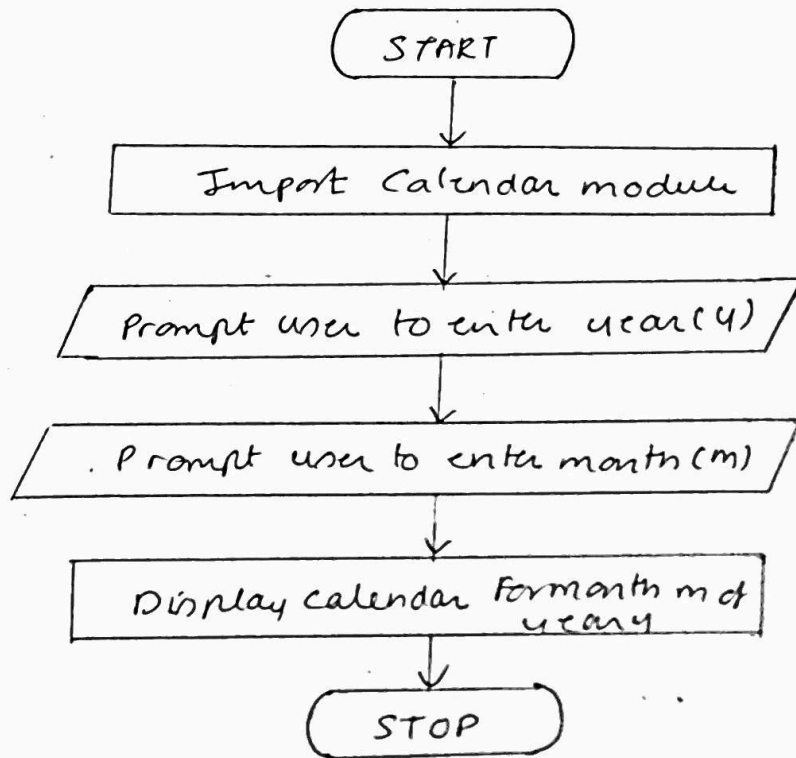 START
Import Calendar module
Prompt user to enter year(y)
Prompt user to enter month(m)
Display calendar For month m of
year y
STOP